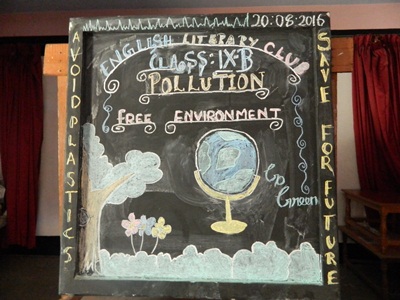 20:08:2016
ENGLISH LITERARY CLUB
CLASS: IX-B
POLLUTION
FREE ENVIRONMENT
Go Green
AVOID PLASTICS
SAVE FOR FUTURE